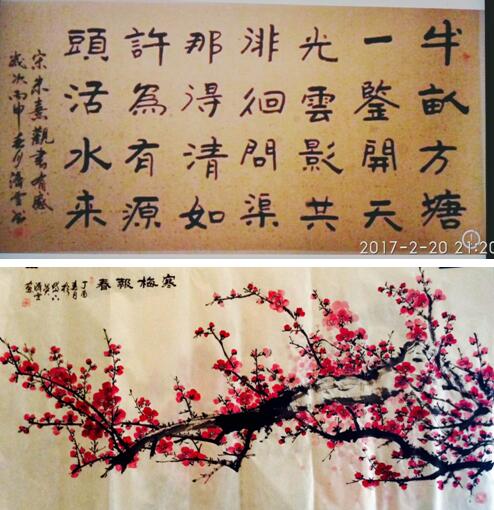 半畝方塘
一鑒開天
光雲影共
徘徊問渠
那得清如
許為有源
頭活水来
宋朱熹觀書有感
歲次丙申春月
2017-2-20 21:20
寒梅報春
丁酉
春月